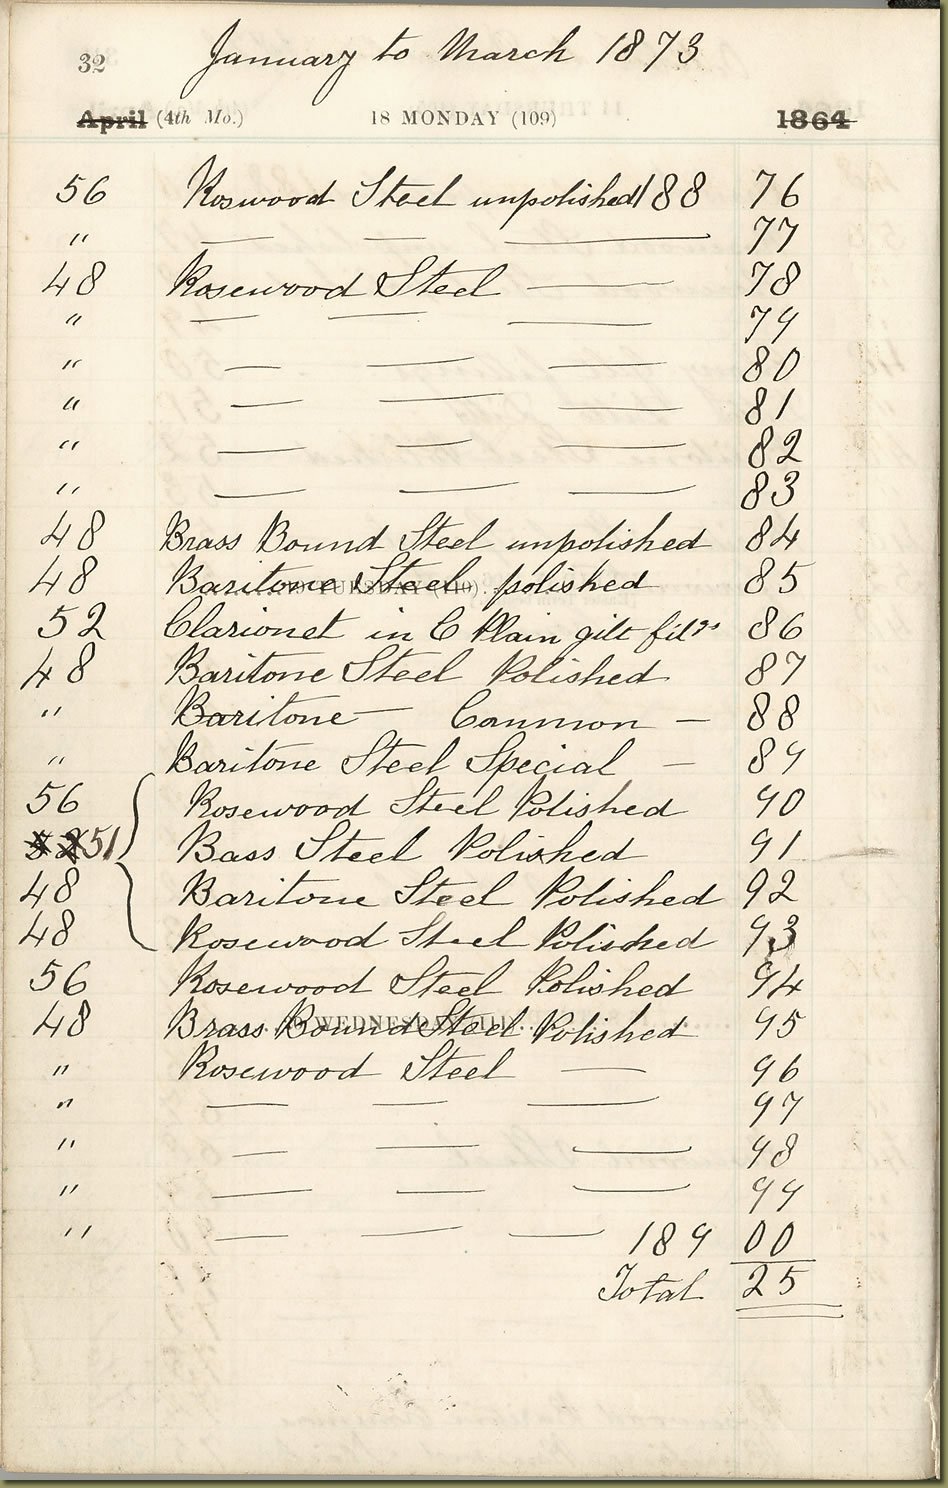 January to March 1873
32
April (4th Mo.) 18 MONDAY (109) 1864
56 Roswood Steel unpolished 188 76
" — — — 77
48 Rosewood Steel — 78
" — — — 79
" — — — 80
" — — — 81
" — — — 82
" — — — 83
48 Brass Bound Steel unpolished 84
48 Baritone Steel polished 85
TUESDAY
52 Clarionet in C Plain gilt fitgs 86
48 Baritone Steel Polished 87
" Baritone — Common — 88
" Baritone Steel Special — 89
56 Rosewood Steel Polished 90
51 Bass Steel Polished 91
48 Baritone Steel Polished 92
48 Rosewood Steel Polished 93
56 Rosewood Steel Polished 94
48 Brass Bound Steel Polished 95
WEDNESDAY
" Rosewood Steel — 96
" — — — 97
" — — — 98
" — — — 99
" — — — 189 00
Total 25